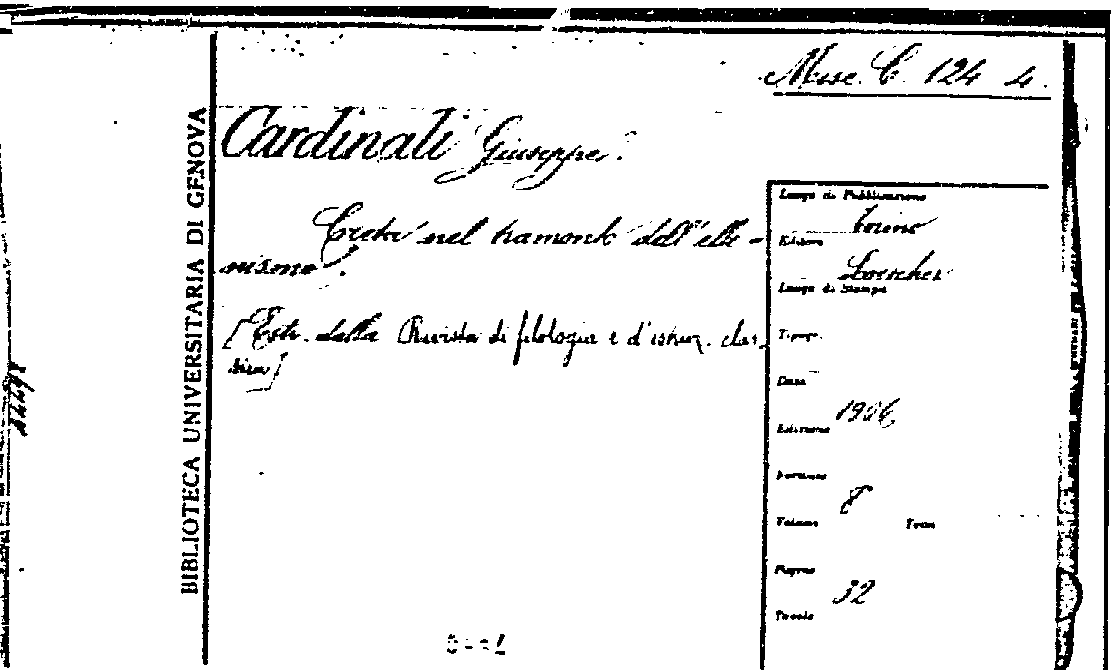 Misc. C. 124 4.
BIBLIOTECA UNIVERSITARIA DI GENOVA
Cardinali Giuseppe.
Creta nel tramonto dell'elle-
nismo.
[Estr. dalla Rivista di filologia e d'istruz. clas-
sica]
Luogo di Pubblicazione
Torino
Editore
Loescher
Luogo di Stampa
Tipogr.
Data
1906
Edizione
Formato
8
Volume Tomi
Pagine
32
Tavole